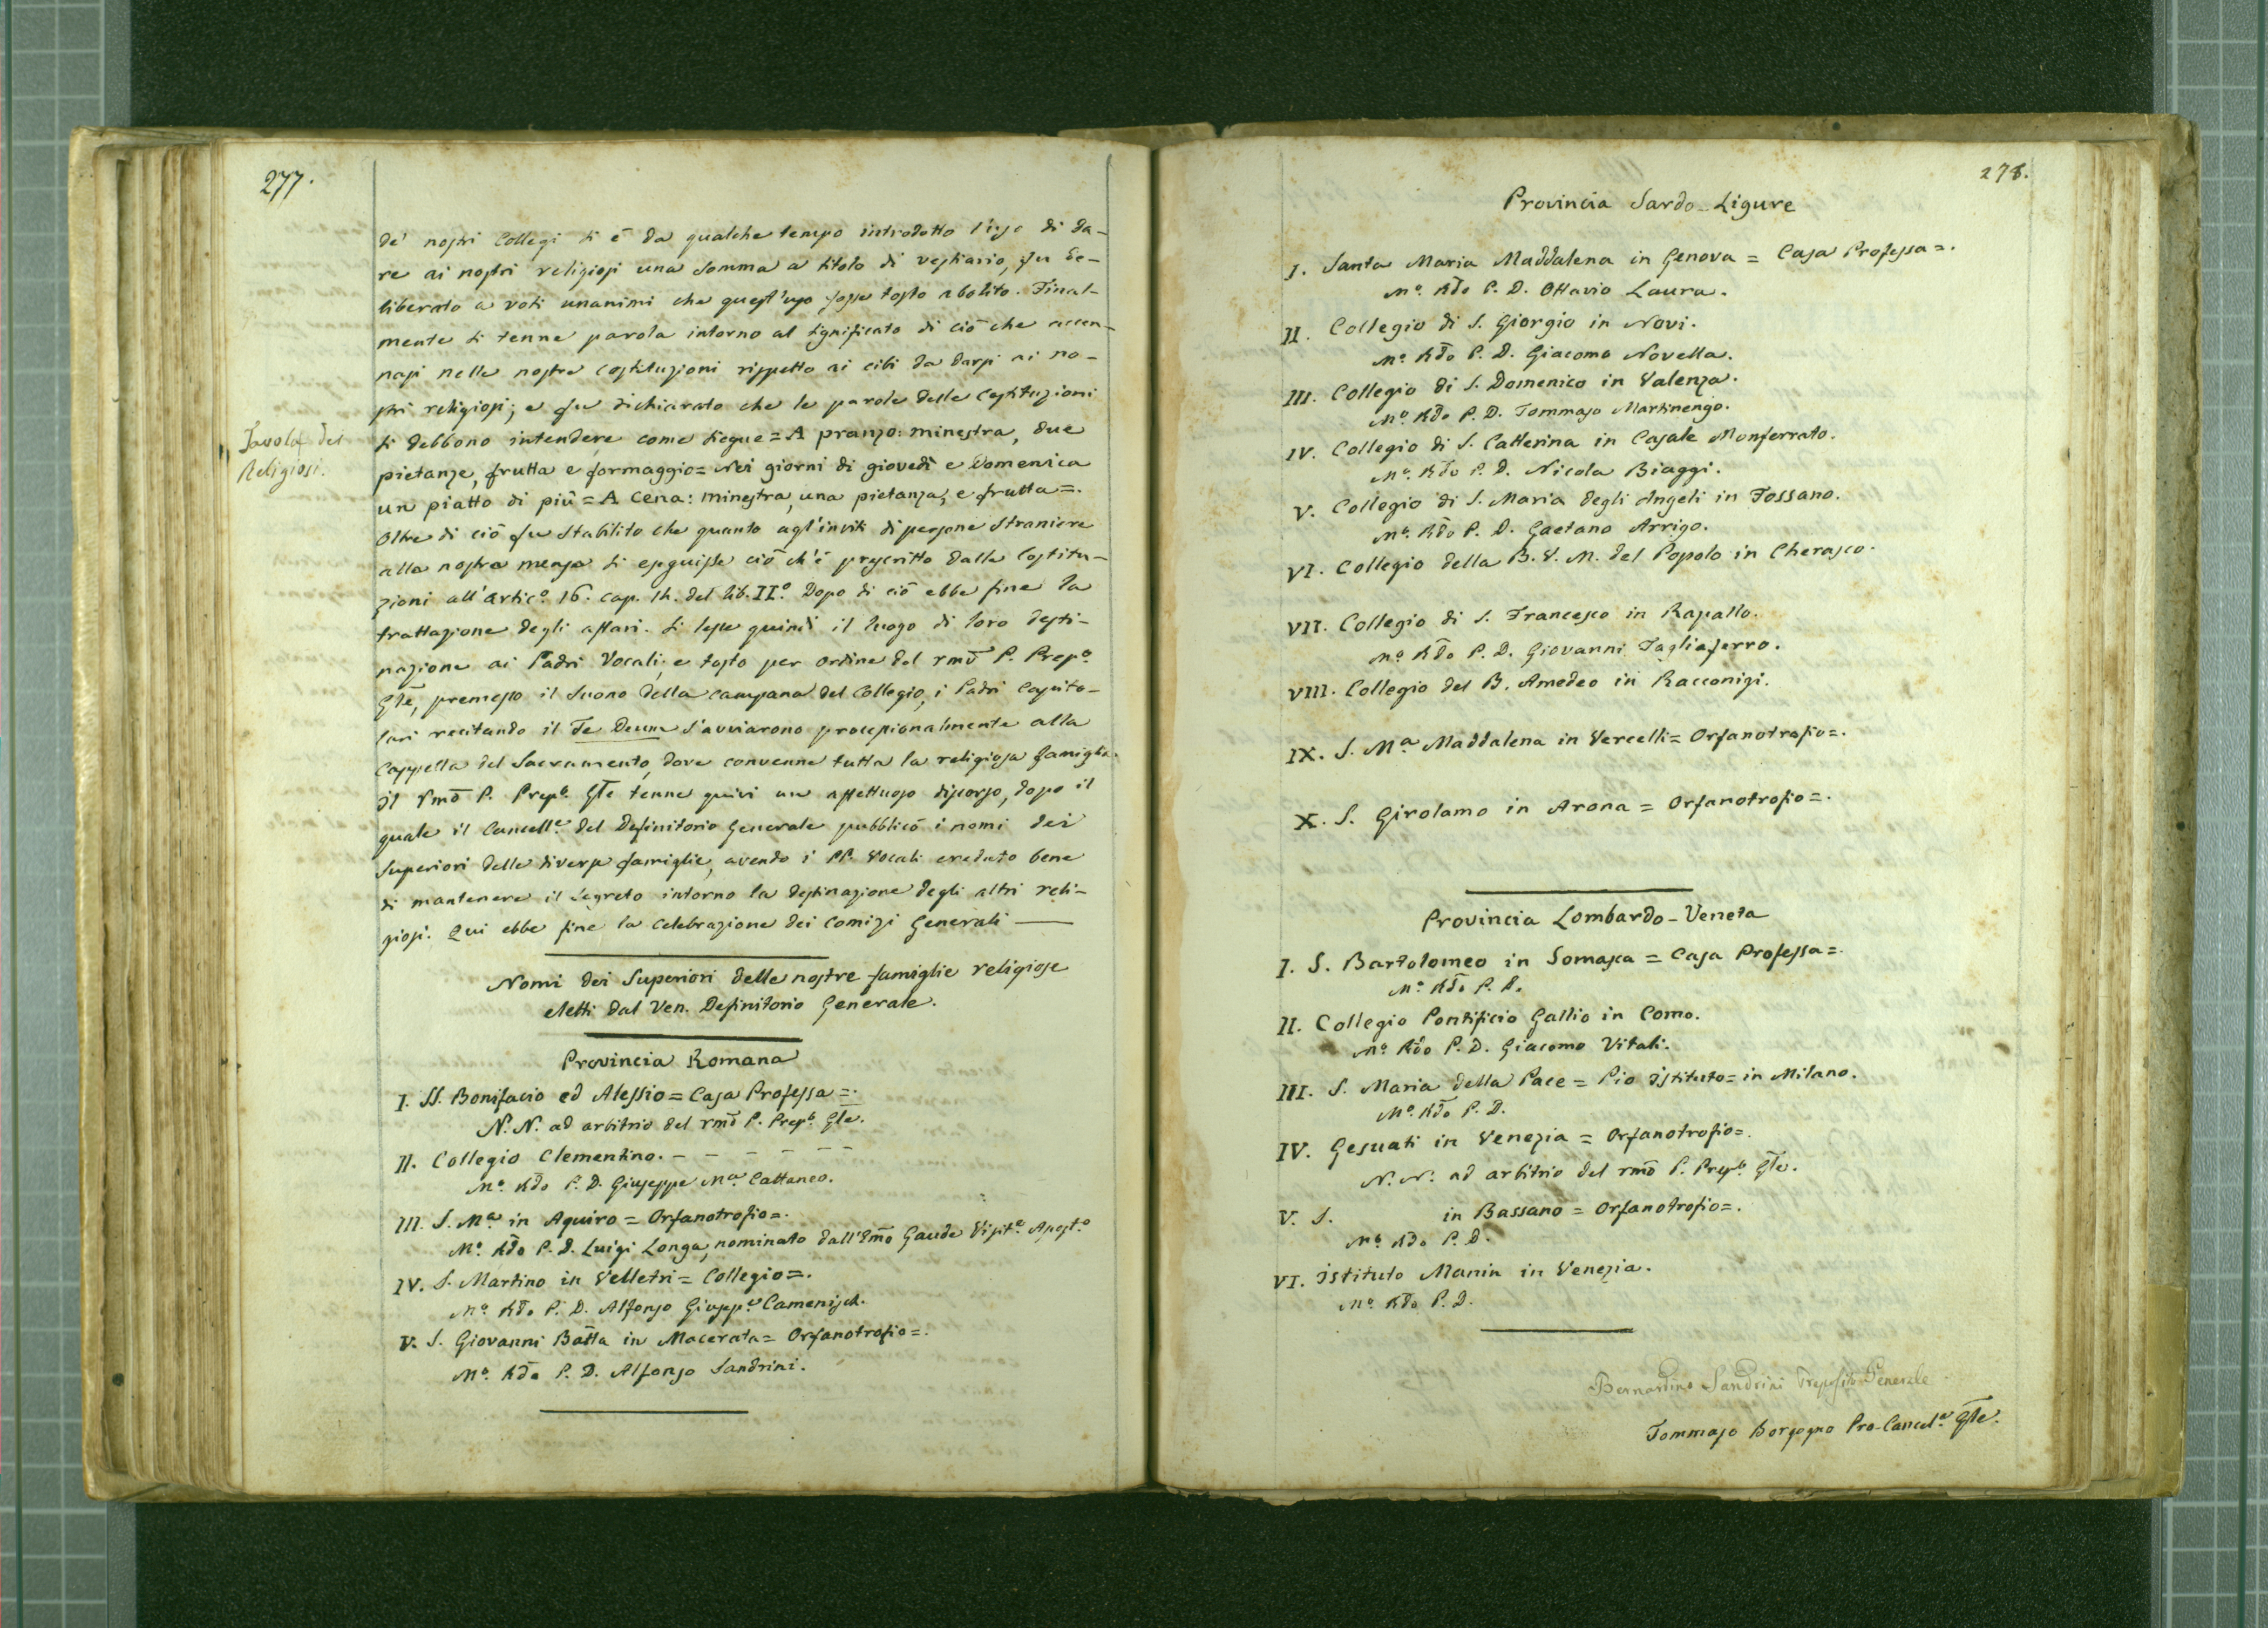 277.
de' nostri Collegi si è da qualche tempo introdotto l'uso di da-
re ai nostri religiosi una somma a titolo di vestiario, fu de-
liberato a voti unanimi che quest'uso fosse tosto abolito. Final-
mente si tenne parola intorno al significato di ciò che accen-
nasi nelle nostre costituzioni rispetto ai cibi da darsi ai no-
stri religiosi; e fu dichiarato che le parole delle Costituzioni
Tavola dei
Religiosi.
si debbono intendere come siegue = A pranzo: minestra, due
pietanze, frutta e formaggio = Nei giorni di giovedì e Domenica
un piatto di più = A cena: minestra, una pietanza, e frutta =.
Oltre di ciò fu stabilito che quanto agl'inviti di persone straniere
alla nostra mensa si eseguisse ciò ch'è prescritto dalle Costitu-
zioni all'artic.o 16. cap. 14. del lib. II.o Dopo di ciò ebbe fine la
trattazione degli affari. Si lesse quindi il luogo di loro desti-
nazione ai Padri Vocali; e tosto per ordine del rmo P. Prep.o
Gle, premesso il suono della campana del Collegio, i Padri Capito-
lari recitando il Te Deum s'avviarono processionalmente alla
Cappella del Sacramento, dove convenne tutta la religiosa famiglia.
Il rmo P. Prep.o Gle tenne quivi un affettuoso discorso, dopo il
quale il Cancell.e del Definitorio Generale pubblicò i nomi dei
Superiori delle diverse famiglie, avendo i PP. Vocali creduto bene
di mantenere il segreto intorno la destinazione degli altri reli-
giosi. Qui ebbe fine la celebrazione dei Comizi Generali —
Nomi dei Superiori delle nostre famiglie religiose
eletti dal Ven. Definitorio Generale.
Provincia Romana
I. SS. Bonifacio ed Alessio = Casa Professa =.
N. N. ad arbitrio del rmo P. Prep.o Gle.
II. Collegio Clementino. - - - - - -
M.o Rdo P. D. Giuseppe M.a Cattaneo.
III. S. M.a in Aquiro = Orfanotrofio =.
M.o Rdo P. D. Luigi Longa, nominato dall'Emo Gaude Visit.e Apost.o
IV. S. Martino in Velletri = Collegio =.
M.o Rdo P. D. Alfonso Giusepp.e Camenisch.
V. S. Giovanni Batta in Macerata = Orfanotrofio =.
M.o Rdo P. D. Alfonso Sandrini.
278.
Provincia Sardo-Ligure
I. Santa Maria Maddalena in Genova = Casa Professa =.
M.o Rdo P. D. Ottavio Laura.
II. Collegio di S. Giorgio in Novi.
M.o Rdo P. D. Giacomo Novella.
III. Collegio di S. Domenico in Valenza.
M.o Rdo P. D. Tommaso Martinengo.
IV. Collegio di S. Catterina in Casale Monferrato.
M.o Rdo P. D. Nicola Biaggi.
V. Collegio di S. Maria degli Angeli in Fossano.
M.o Rdo P. D. Gaetano Arrigo.
VI. Collegio della B. V. M. del Popolo in Cherasco.
VII. Collegio di S. Francesco in Rapallo.
M.o Rdo P. D. Giovanni Tagliaferro.
VIII. Collegio del B. Amedeo in Racconigi.
IX. S. M.a Maddalena in Vercelli = Orfanotrofio =.
X. S. Girolamo in Arona = Orfanotrofio =.
Provincia Lombardo-Veneta
I. S. Bartolomeo in Somasca = Casa Professa =.
M.o Rdo P. D.
II. Collegio Pontificio Gallio in Como.
M.o Rdo P. D. Giacomo Vitali.
III. S. Maria della Pace = Pio istituto = in Milano.
M.o Rdo P. D.
IV. Gesuati in Venezia = Orfanotrofio =.
N. N. ad arbitrio del rmo P. Prep.o Gle.
V. S. in Bassano = Orfanotrofio =.
M.o Rdo P. D.
VI. istituto Manin in Venezia.
M.o Rdo P. D.
Bernardino Sandrini Preposito Generale
Tommaso Borgogno Pro-Cancel.e Gle.